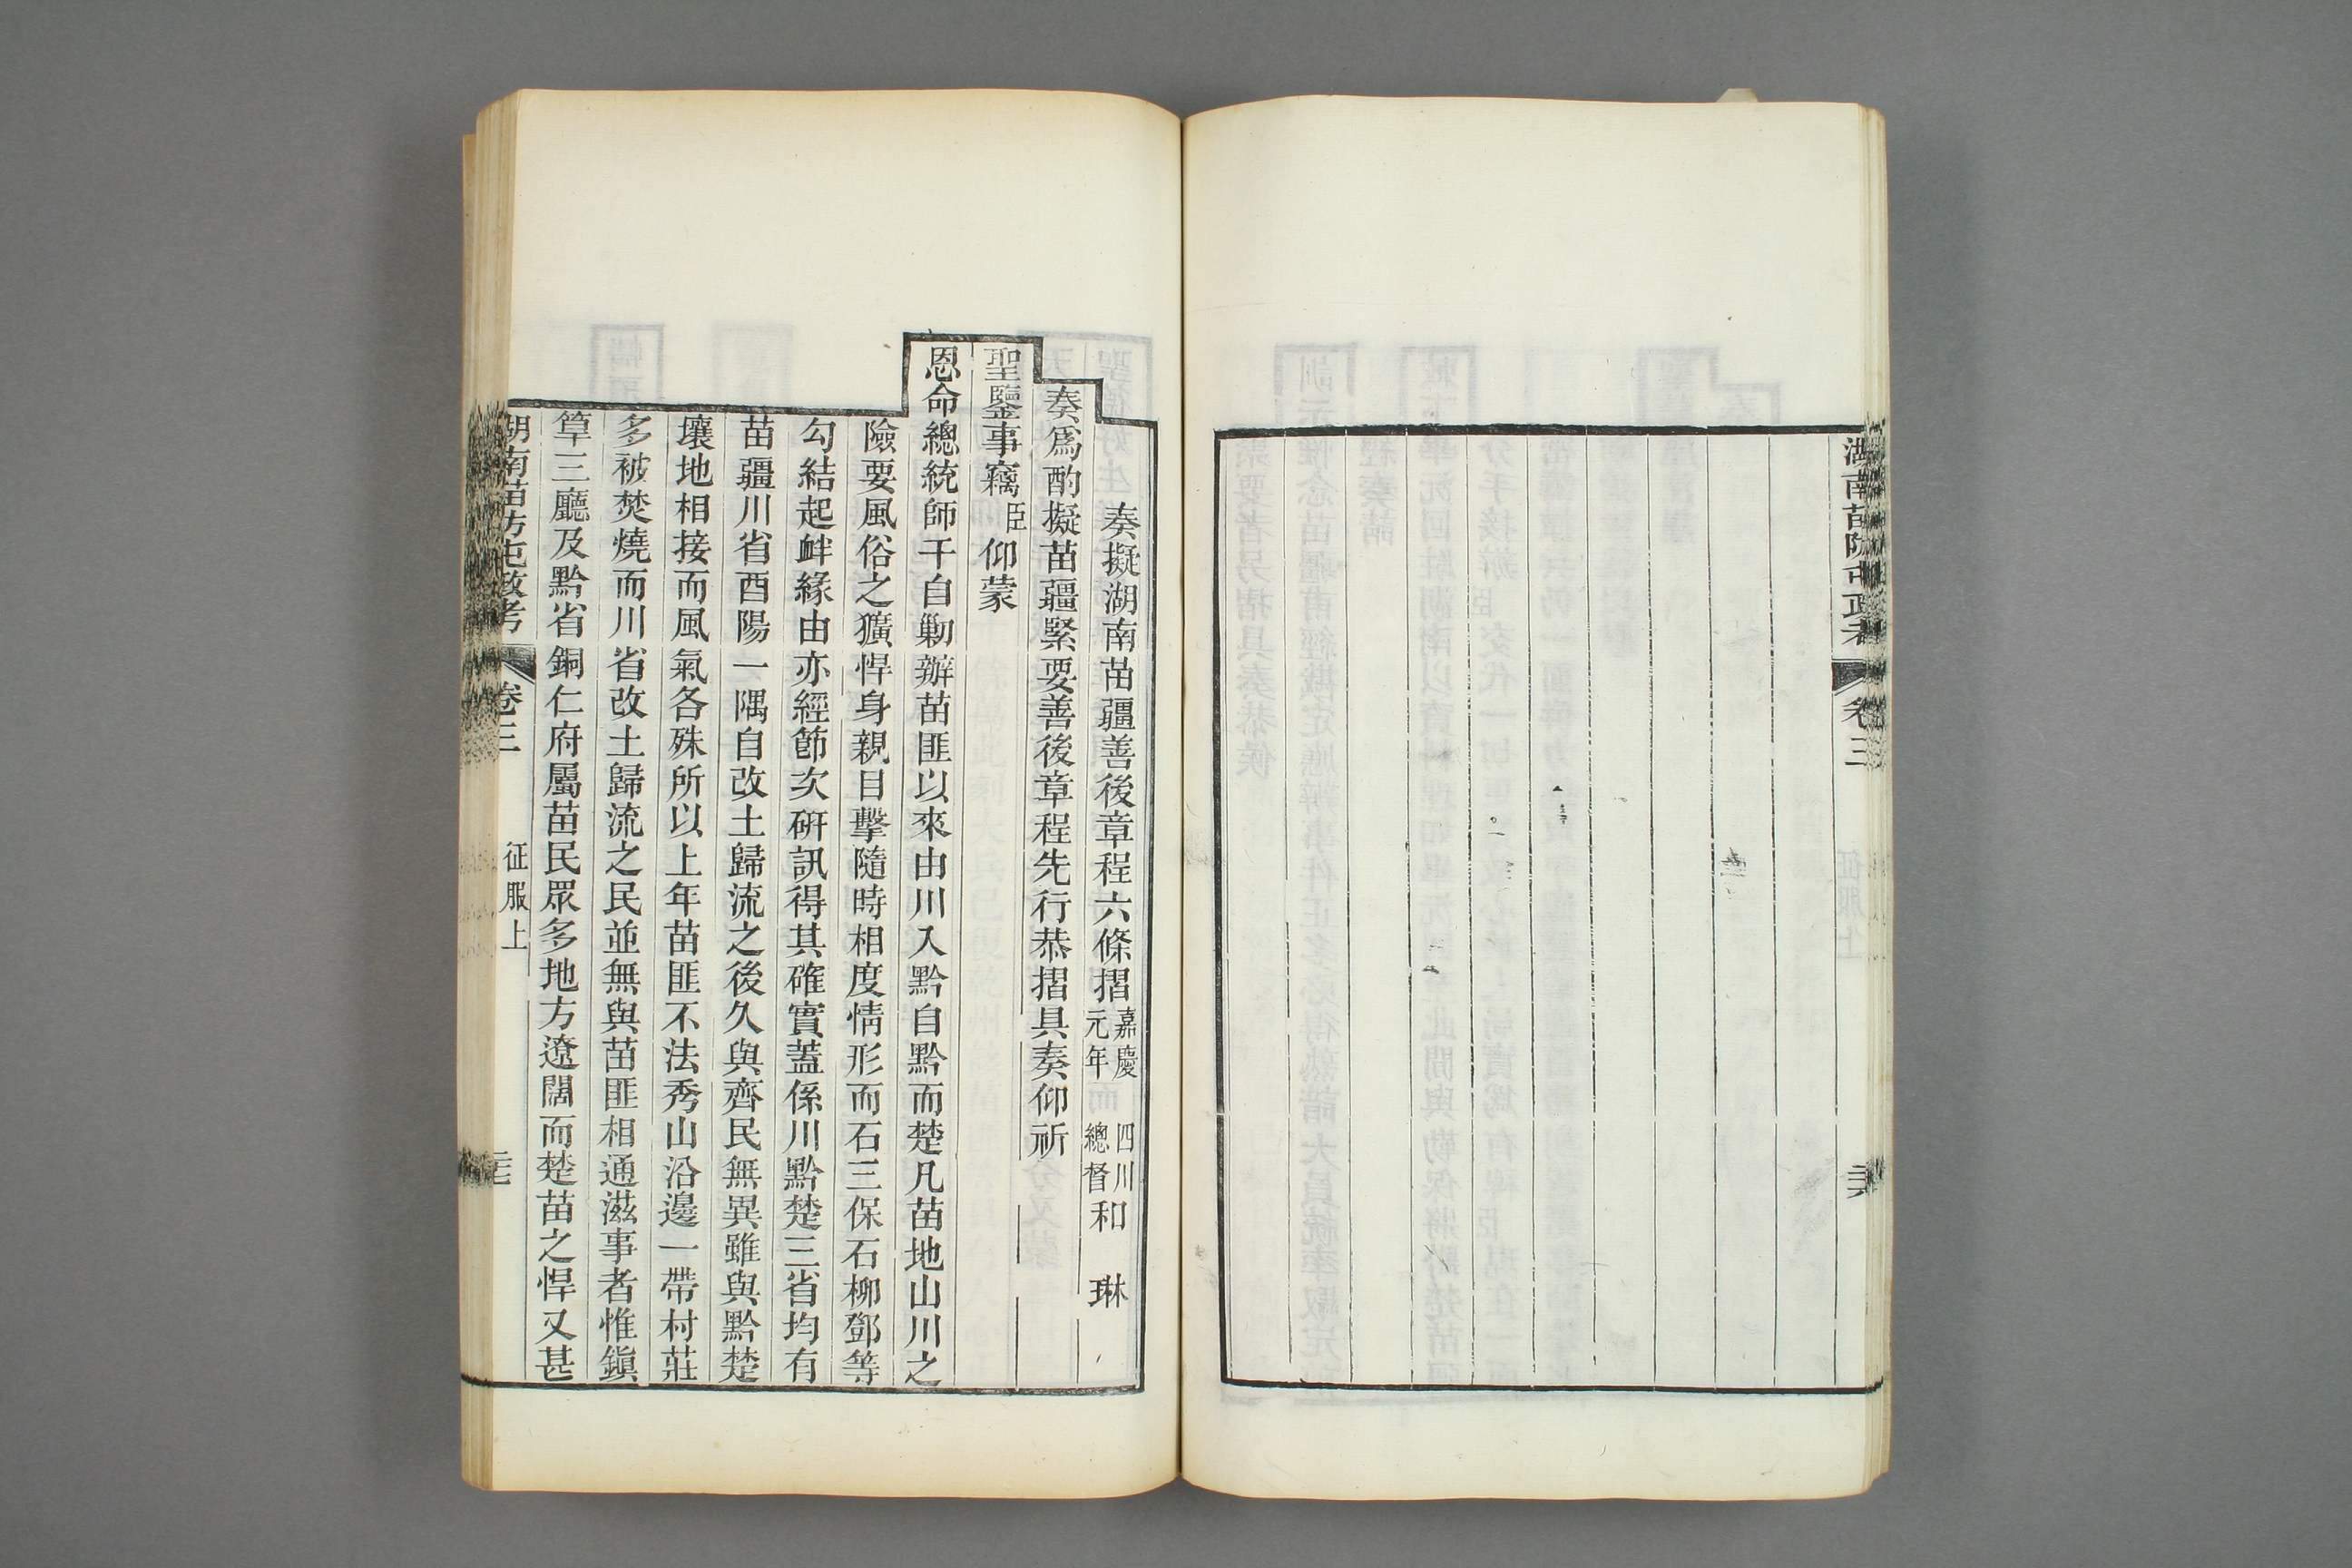 湖南苗防屯政考
卷三
奏擬湖南苗疆善後章程六條摺嘉慶元年 四川總督和 琳
奏爲酌擬苗疆緊要善後章程先行恭摺具奏仰祈
聖鑒事竊臣仰蒙
恩命總統師干自剿辦苗匪以來由川入黔自黔而楚凡苗地山川之
險要風俗之獷悍身親目擊隨時相度情形而石三保石柳鄧等
勾結起衅緣由亦經節次研訊得其確實蓋係川黔楚三省均有
苗疆川省酉陽一隅自改土歸流之後久與齊民無異雖與黔楚
壤地相接而風氣各殊所以上年苗匪不法秀山沿邊一帶村莊
多被焚燒而川省改土歸流之民並無與苗匪相通滋事者惟鎭
筸三廳及黔省銅仁府屬苗民眾多地方遼闊而楚苗之悍又甚
湖南苗防屯政考
卷三
征服上